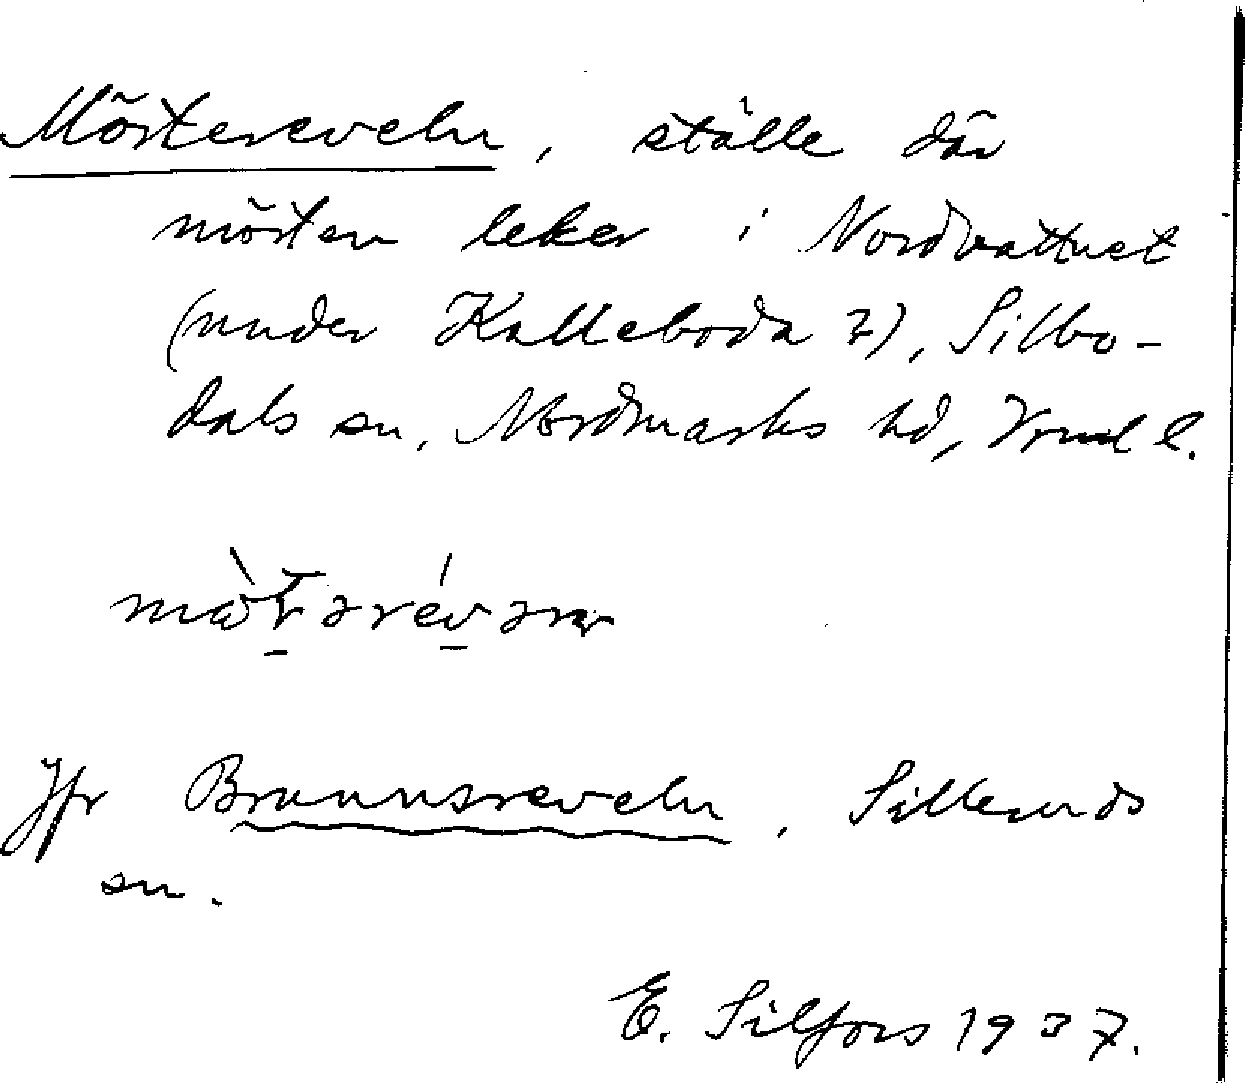 Mörtereveln, ställe där
mörten leker i Nordvattnet
(under Kalleboda ?), Silbo-
dals sn, Nordmarks hd, Vrml l.
Jfr Brunnsreveln, Silleruds
sn.
E. Silfors 1937.